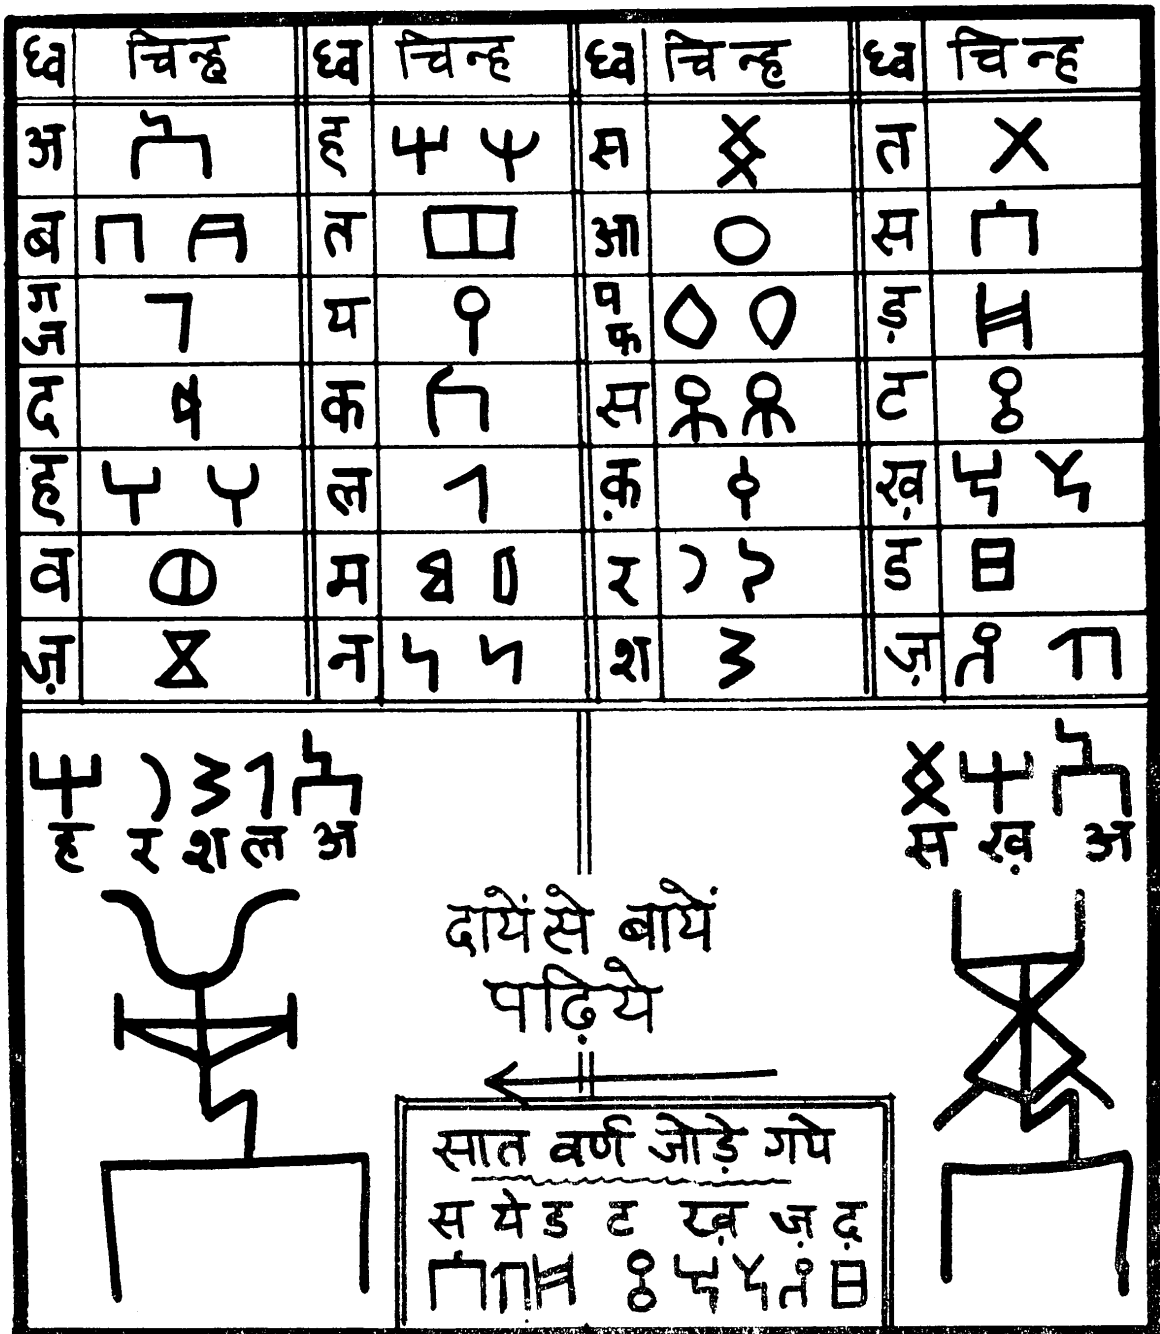 ध्व चिन्ह ध्व चिन्ह ध्व चिन्ह ध्व चिन्ह
अ ह स त
ब त आ स
ग ज य प फ ड़
द क स ट
ह ल क़ ख़
व म र ड
ज़ न श ज़
ह र श ल अ
स ख़ अ
दायें से बायें
पढ़िये
सात वर्ण जोड़े गये
स ये ड ट ख़ ज़ द़